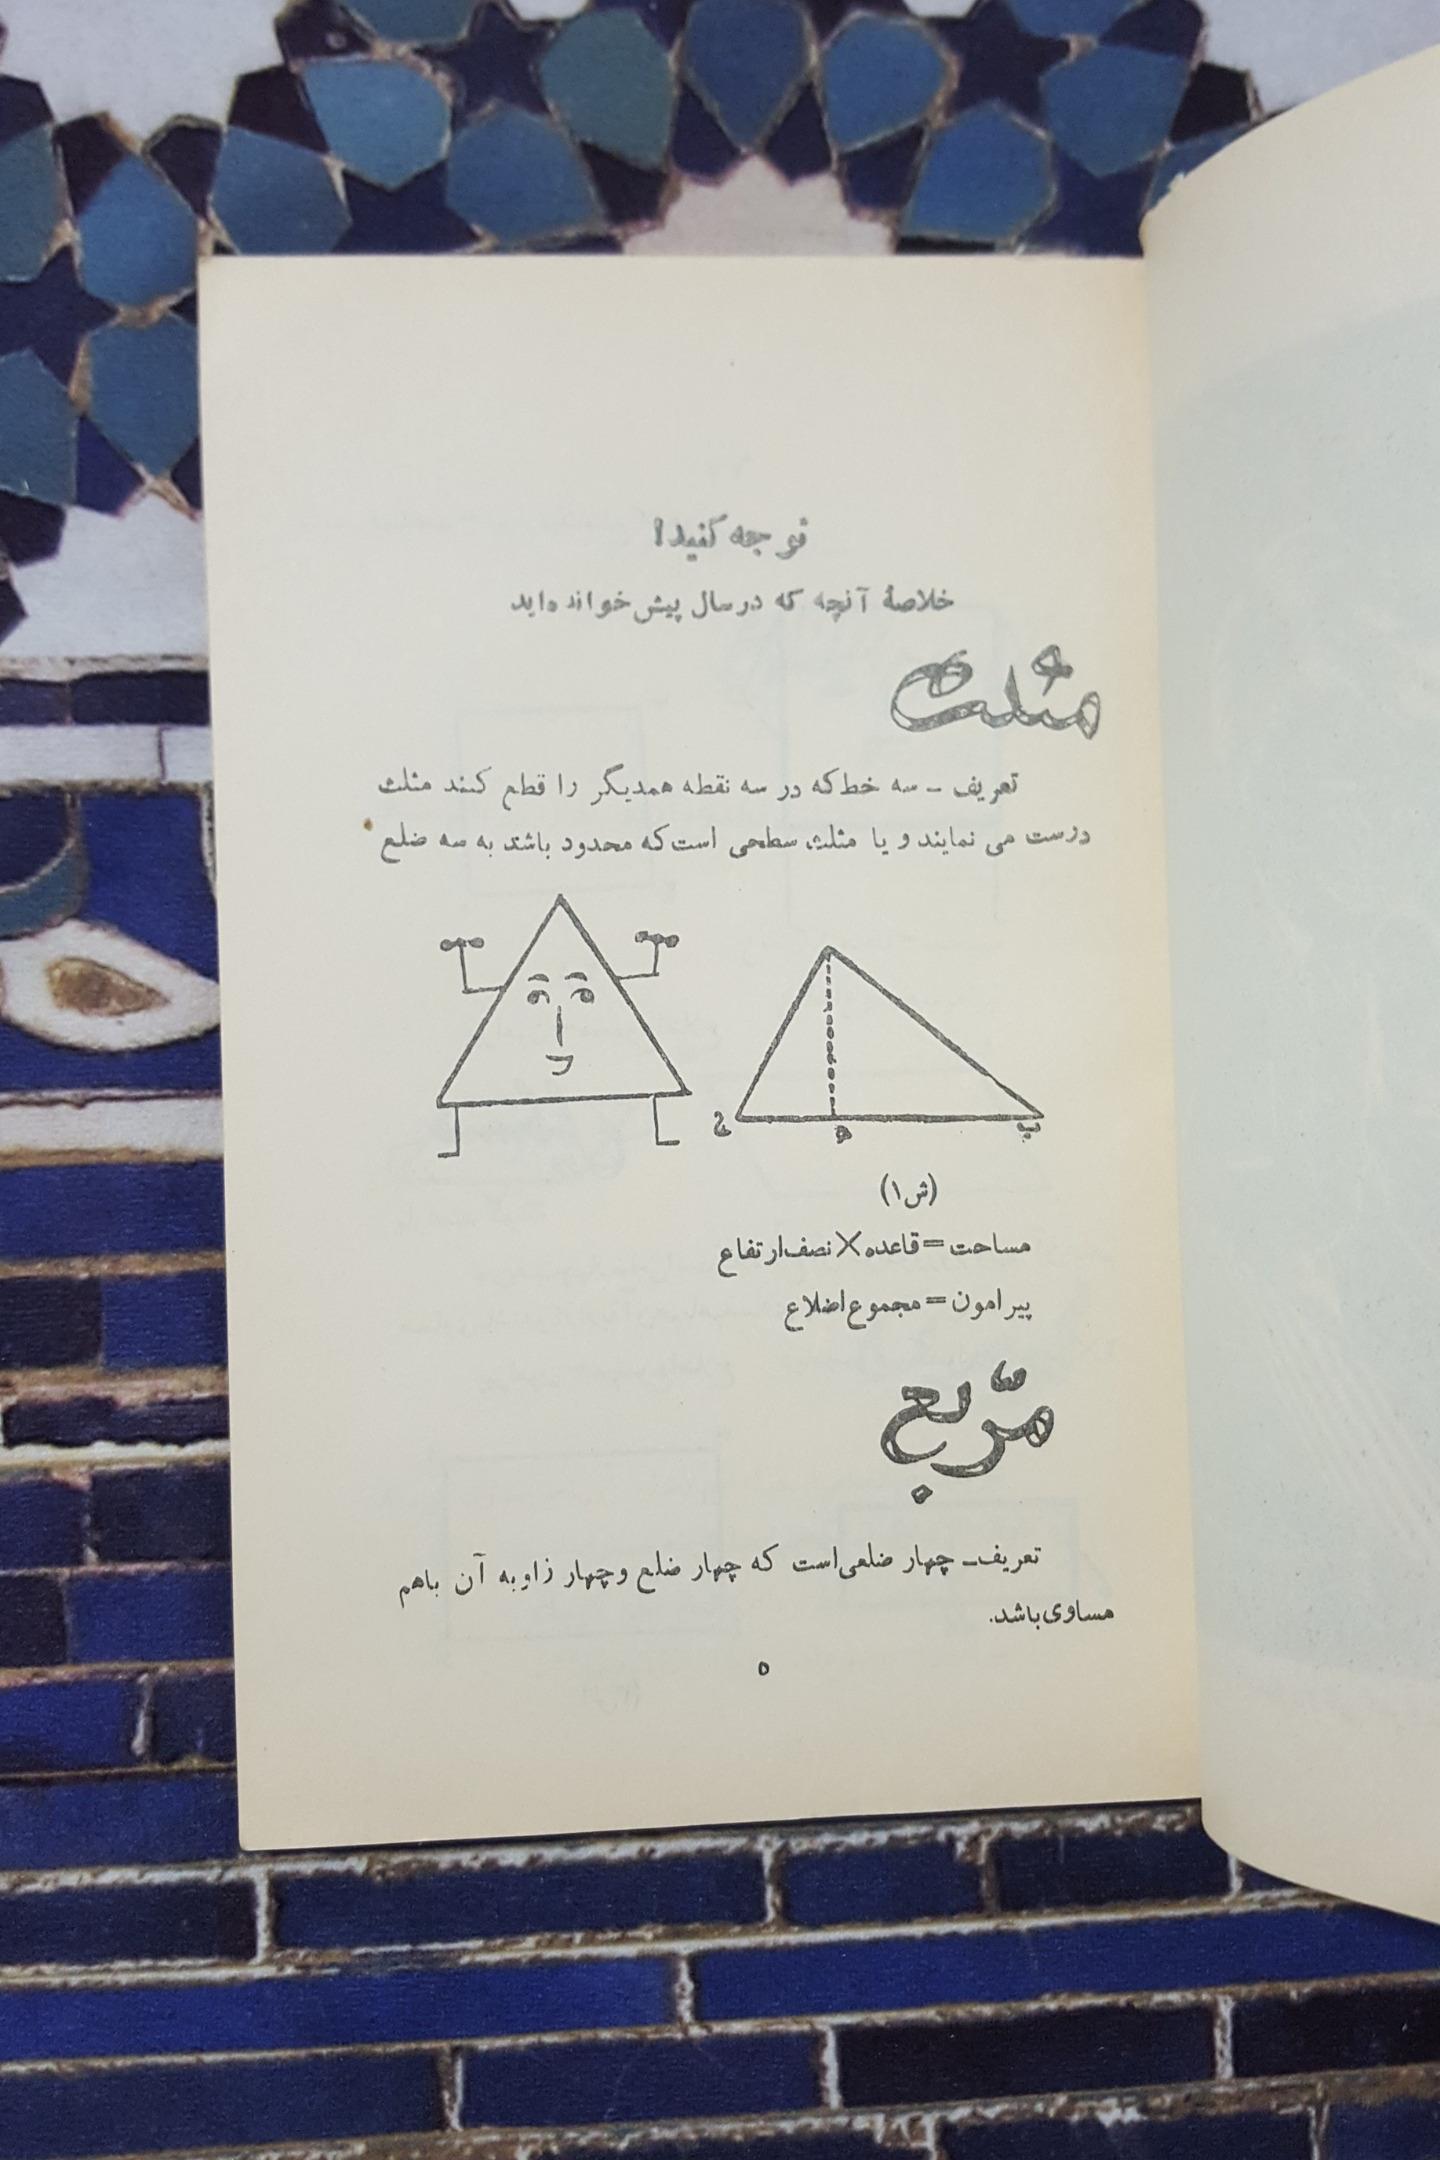 توجه کنید!
خلاصهٔ آنچه که در سال پیش خوانده‌اید
مثلث
تعریف ـ سه خط که در سه نقطه همدیگر را قطع کنند مثلث
درست می نمایند و یا مثلث سطحی است که محدود باشد به سه ضلع
ج ه ب
(ش۱)
مساحت = قاعده × نصف ارتفاع
پیرامون = مجموع اضلاع
مربّع
تعریف ـ چهار ضلعی است که چهار ضلع و چهار زاویه آن باهم
مساوی باشد.
۵